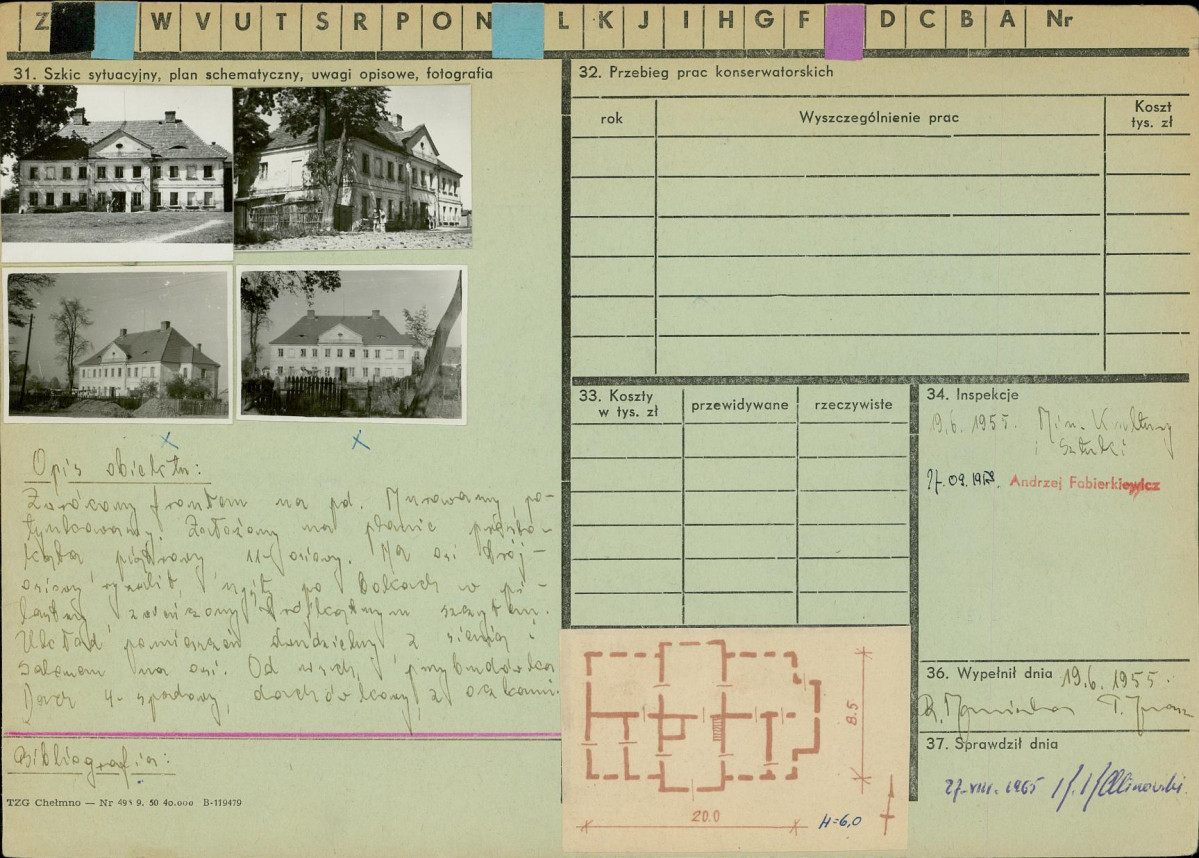 Z W V U T S R P O N L K J I H G F D C B A Nr
31. Szkic sytuacyjny, plan schematyczny, uwagi opisowe, fotografia
Opis obiektu:
Zwrócony frontem na pd. Murowany, po-
tynkowany. Założony na planie prosto-
kąta piętrowy 11-osiowy. Na osi trój-
osiowy ryzalit, ujęty po bokach w pi-
lastry, zwieńczony trójkątnym szczytem.
Układ pomieszczeń dwudzielny z sienią i
salonem na osi. Od wsch. przybudówka
Dach 4-spadowy, dachówkowy z oskami.
Bibliografia:
TZG Chełmno — Nr 9. 50 40.000 B-119479
32. Przebieg prac konserwatorskich
rok
Wyszczególnienie prac
Koszt
tys. zł
33. Koszty
w tys. zł
przewidywane
rzeczywiste
34. Inspekcje
19.6.1955. Min. Kultury
i Sztuki
Andrzej Fabierkiewicz
8.5
20.0
H=6,0
36. Wypełnił dnia 19.6.1955.
37. Sprawdził dnia
27.VIII.1965